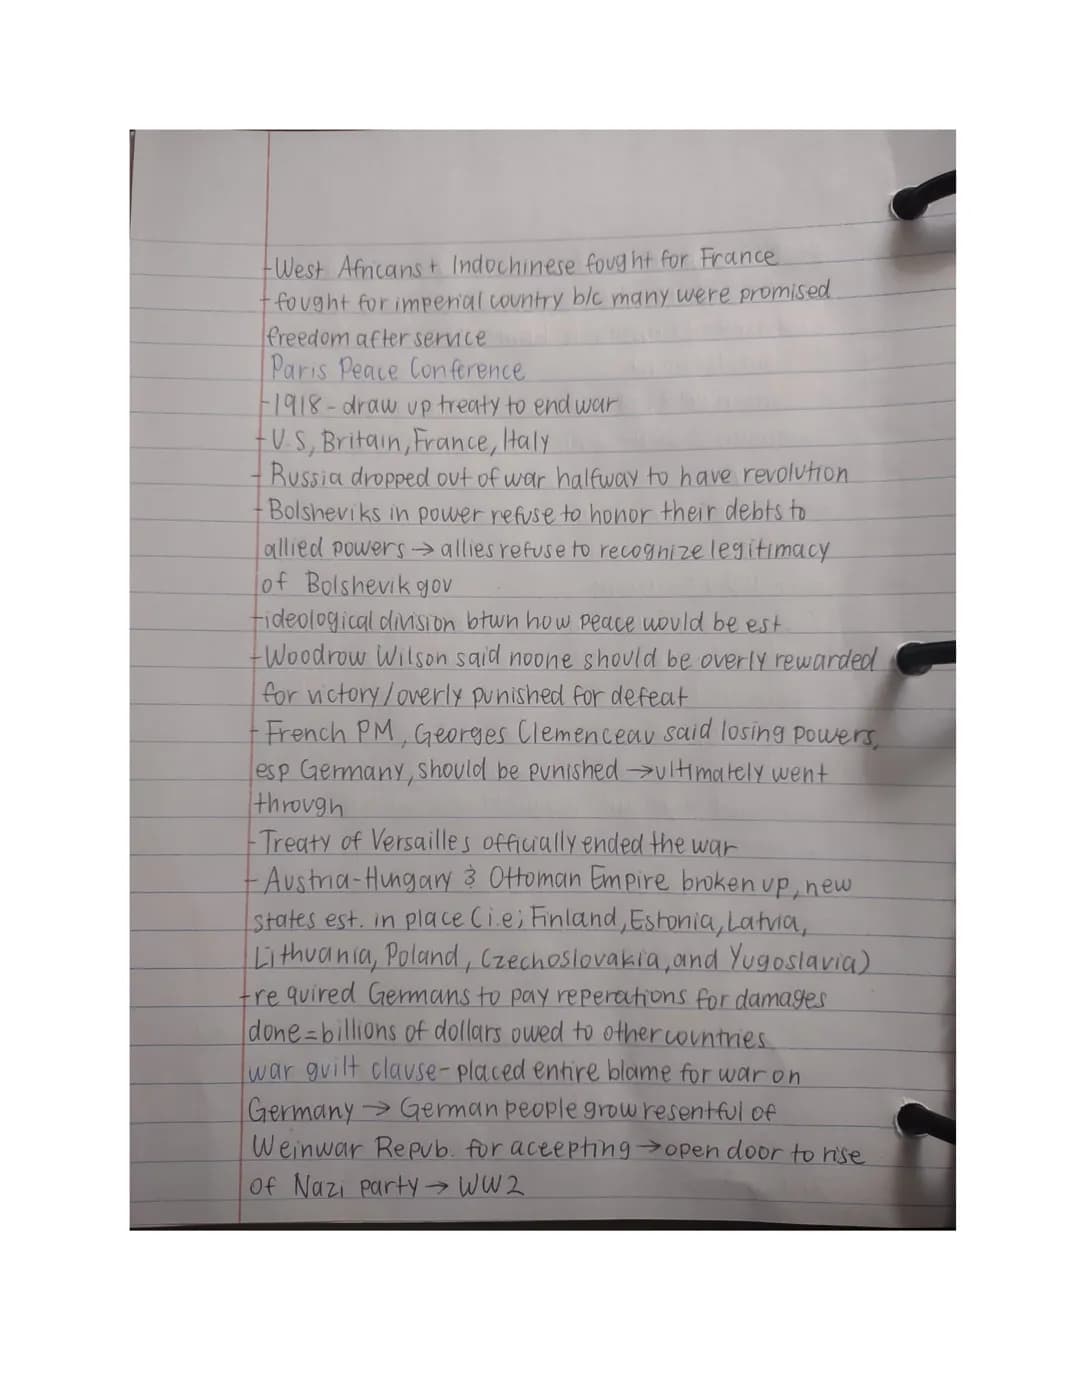 -West Africans + Indochinese fought for France
-fought for imperial country b/c many were promised
freedom after service
Paris Peace Conference
-1918 - draw up treaty to end war
-U.S, Britain, France, Italy
-Russia dropped out of war halfway to have revolution
-Bolsheviks in power refuse to honor their debts to
allied powers → allies refuse to recognize legitimacy
of Bolshevik gov
-ideological division btwn how peace would be est
-Woodrow Wilson said noone should be overly rewarded
for victory/overly punished for defeat
-French PM, Georges Clemenceau said losing powers,
esp Germany, should be punished → ultimately went
through
-Treaty of Versailles officially ended the war
-Austria-Hungary & Ottoman Empire broken up, new
states est. in place (i.e; Finland, Estonia, Latvia,
Lithuania, Poland, Czechoslovakia, and Yugoslavia)
-required Germans to pay reperations for damages
done = billions of dollars owed to other countries
war guilt clause - placed entire blame for war on
Germany → German people grow resentful of
Weinwar Repub. for aceepting → open door to rise
of Nazi party → WW2